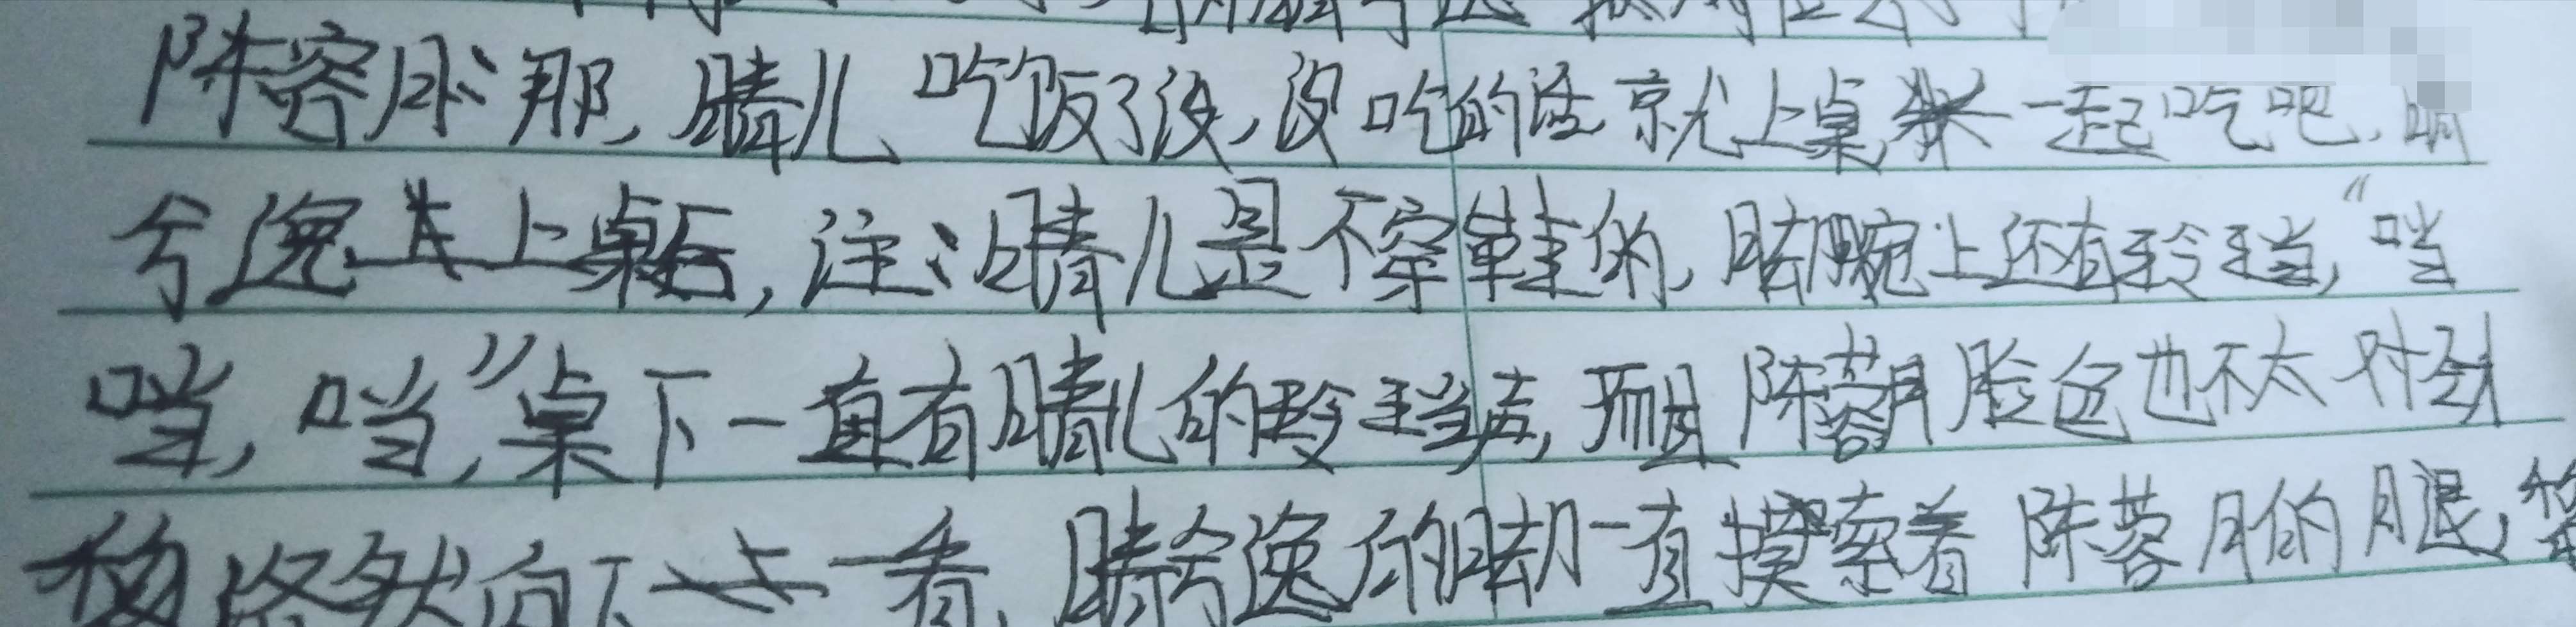 陈容月:那,晴儿吃饭了没,没吃的话就上桌一起吃吧,晴
兮逸上桌后,注:晴儿是不穿鞋的,脚腕上还有玲珰,“当
当,当,”桌下一直有晴儿的玲珰声,而且陈蓉月脸色也不太对劲
悠然向下一看,晴兮逸的脚一直摸索着陈蓉月的腿,